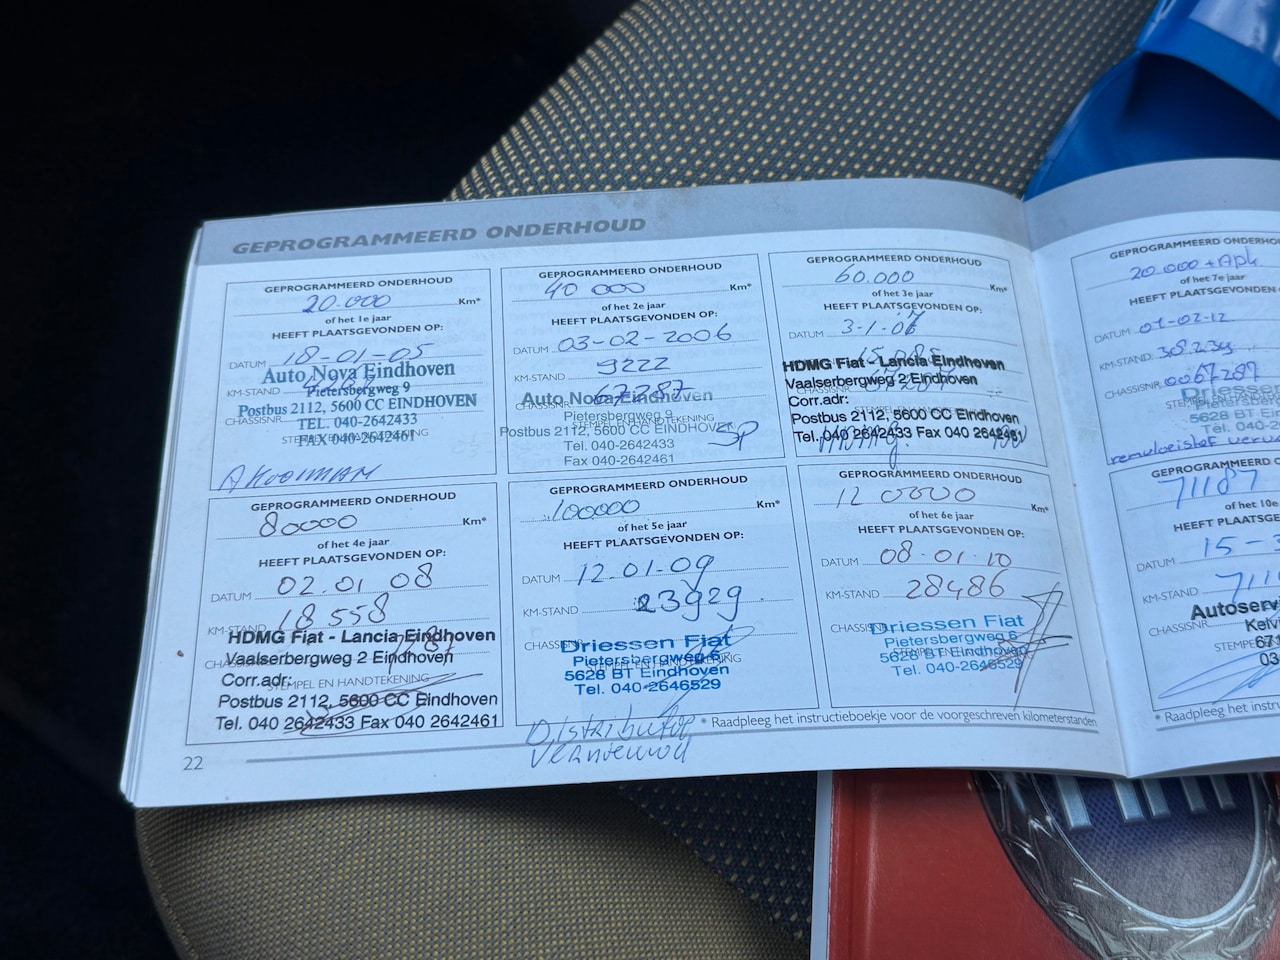 GEPROGRAMMEERD ONDERHOUD
GEPROGRAMMEERD ONDERHOUD
20.000 Km*
of het 1e jaar
HEEFT PLAATSGEVONDEN OP:
DATUM 18-01-05
Auto Nova Eindhoven
KM-STAND
Pietersbergweg 9
Postbus 2112, 5600 CC EINDHOVEN
CHASSISNR.
TEL. 040-2642433
STEMPEL EN HANDTEKENING
FAX 040-2642461
GEPROGRAMMEERD ONDERHOUD
40 000 Km*
of het 2e jaar
HEEFT PLAATSGEVONDEN OP:
DATUM 03-02-2006
KM-STAND 9222
CHASSISNR. 67287
Auto Nova Eindhoven
Pietersbergweg 9
STEMPEL EN HANDTEKENING
Postbus 2112, 5600 CC EINDHOVEN
Tel. 040-2642433
Fax 040-2642461
GEPROGRAMMEERD ONDERHOUD
60.000 Km*
of het 3e jaar
HEEFT PLAATSGEVONDEN OP:
DATUM 3-1-
HDMG Fiat - Lancia Eindhoven
Vaalserbergweg 2 Eindhoven
Corr.adr:
Postbus 2112, 5600 CC Eindhoven
Tel. 040 2642433 Fax 040 2642461
GEPROGRAMMEERD ONDERHOUD
80000 Km*
of het 4e jaar
HEEFT PLAATSGEVONDEN OP:
DATUM 02.01 08
KM-STAND 18558
HDMG Fiat - Lancia Eindhoven
Vaalserbergweg 2 Eindhoven
Corr.adr:
STEMPEL EN HANDTEKENING
Postbus 2112, 5600 CC Eindhoven
Tel. 040 2642433 Fax 040 2642461
GEPROGRAMMEERD ONDERHOUD
100000
of het 5e jaar
HEEFT PLAATSGEVONDEN OP:
DATUM 12.01-09
KM-STAND 23929
CHASSISNR.
Driessen Fiat
Pietersbergweg 6
STEMPEL EN HANDTEKENING
5628 BT Eindhoven
Tel. 040-2646529
Distributie
GEPROGRAMMEERD ONDERHOUD
120000 Km*
of het 6e jaar
HEEFT PLAATSGEVONDEN OP:
DATUM 08.01.10
KM-STAND 28486
CHASSISNR.
Driessen Fiat
Pietersbergweg 6
5628 BT Eindhoven
Tel. 040-2646529
* Raadpleeg het instructieboekje voor de voorgeschreven kilometerstanden
22
GEPROGRAMMEERD
20.000 + Apk
of het 7e jaar
HEEFT PLAATSGEVONDEN
DATUM 01-02-12
KM-STAND 38239
CHASSISNR. 0067287
5628 BT
Tel. 040
remvloeistof
GEPROGRAMMEERD
71187
of het 10e
HEEFT PLAATSGEVONDEN
DATUM 15-
KM-STAND
CHASSISNR.
STEMPEL
* Raadpleeg het